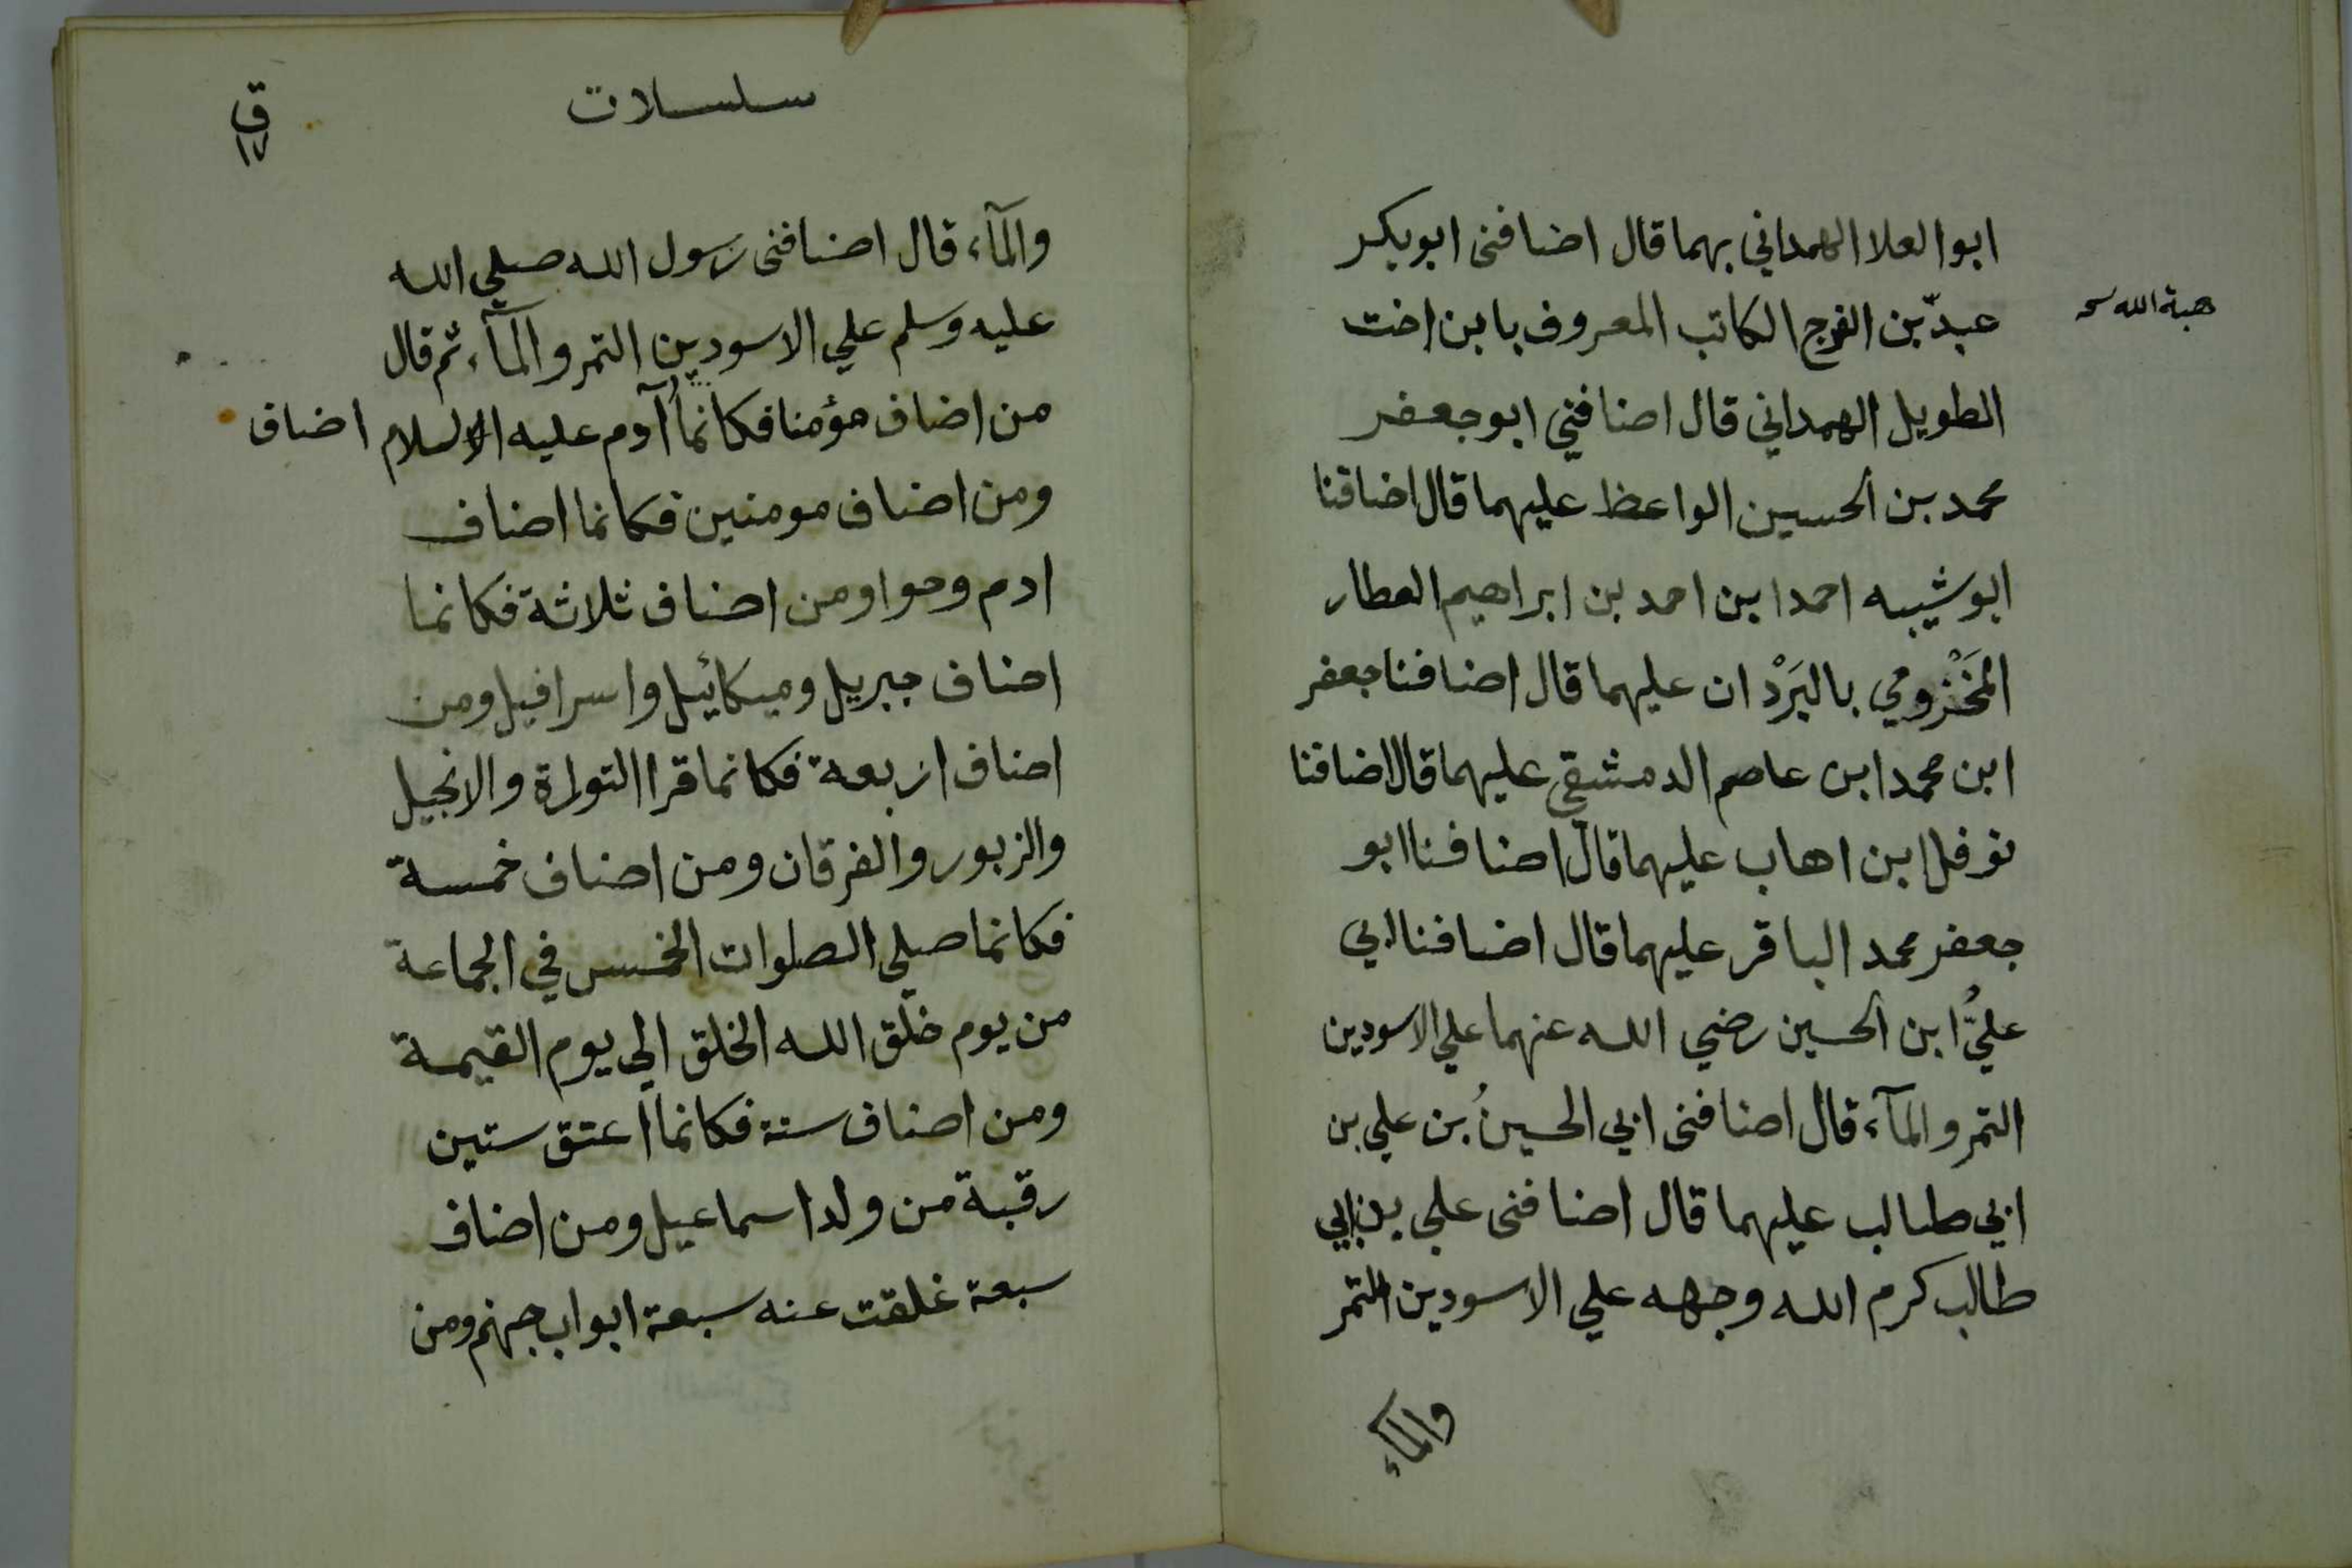 ابوالعلا الهمداني بهما قال اضافنى ابوبكر
هبة الله
عبد بن الفرج الكاتب المعروف بابن اخت
الطويل الهمداني قال اضافني ابو جعفر
محمد بن الحسين الواعظ عليهما قال اضافنا
ابوشيبه احمد ابن احمد بن ابراهيم العطار
المَخْزومي بالبَرْدان عليهما قال اضافنا جعفر
ابن محمد ابن عاصم الدمشقي عليهما قال اضافنا
نوفل ابن اهاب عليهما قال اضافنا ابو
جعفر محمد الباقر عليهما قال اضافنا ابي
عليُّ ابن الحسين رضي الله عنهما علي الاسودين
التمر والمآء قال اضافنى ابي الحسينُ بن علي بن
ابي طالب عليهما قال اضافنى علي بن ابي
طالب كرم الله وجهه علي الاسودين التمر
والمآء
سلسلات
ق
١٧
والمآء قال اضافنى رسول الله صلي الله
عليه وسلم علي الاسودين التمر والمآء ثم قال
من اضاف مؤمنا فكانما آدم عليه السلام اضاف
ومن اضاف مومنين فكانما اضاف
ادم وحوا ومن اضاف ثلاثة فكانما
اضاف جبريل وميكائيل واسرافيل ومن
اضاف اربعة فكانما قرا التوراة والانجيل
والزبور والفرقان ومن اضاف خمسة
فكانما صلي الصلوات الخمس في الجماعة
من يوم خلق الله الخلق الي يوم القيمة
ومن اضاف ستة فكانما اعتق ستين
رقبة من ولد اسماعيل ومن اضاف
سبعة غلقت عنه سبعة ابواب جهنم ومن